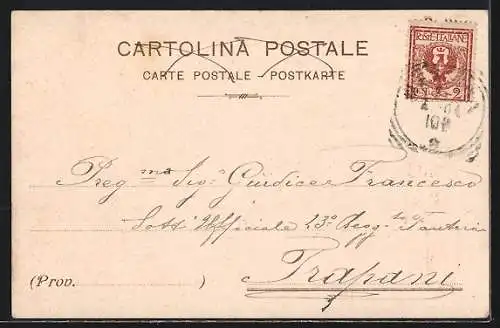 CARTOLINA POSTALE
CARTE POSTALE - POSTKARTE
POSTE ITALIANE
2
Preg.ma Sig.r Giudice Francesco
Sott' Ufficiale 23º Regg.to Fanteria
Trapani
(Prov. )